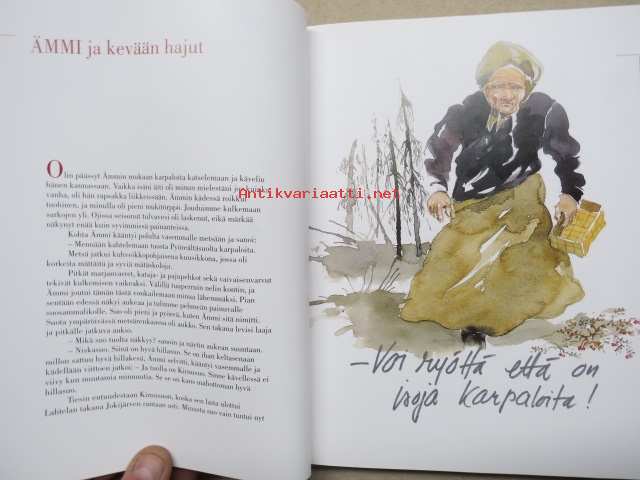 ÄMMI ja kevään hajut
Olin päässyt Ämmin mukaan karpaloita katselemaan ja kävelin
hänen kannassaan. Vaikka isäni äiti oli minun mielestäni jo
vanha, oli hän rapsakka liikkeissään. Ämmin kädessä roikkui
tuohinen, ja minulla oli pieni nokinappi. Jouduimme kulkemaan
sarkojen yli. Ojissa seisonut tulvavesi oli laskenut, eikä märkää
näkynyt enää kuin syvimmissä painanteissa.
Kohta Ämmi kääntyi polulta vasemmalle metsään ja sanoi:
– Mennään kahtelemaan tuosta Pyöriältysuolta karpaloita.
Metsä jatkui kuivikkopohjaisena kuusikkona, jossa oli
korkeita mättäitä ja syviä mätäskoloja.
Pitkät marjanvarvut, kataja- ja pajupehkot sekä vaivaisenvarvut
tekivät kulkemisen vaikeaksi. Välillä tuupernin nelin kontin, ja
Ämmi joutui tämän tästä vonkalemaan minua lähemmäksi. Pian
sentään edessä näkyi aukeaa ja tulimme pehmeän painuvalle
suosammalikolle. Suo oli pieni ja pyöreä, kuten Ämmi sitä nimitti.
Suota ympäröivässä metsänreunassa oli aukko. Sen takana levisi laaja
ja pitkälle jatkuva aukio.
– Mikä suo tuolla näkkyy? sanoin ja näytin aukean suuntaan.
– Niskasuo. Siinä on hyvä hillasuo. Se on ihan keltasenaan
millon sattuu hyvä hillakesä, Ämmi selitti, kääntyi vasemmalle ja
kädellään viittoen jatkoi: – Ja tuolla on Kirnusuo. Sinne kävellessä ei
viivy kun muutamia minuutia. Se on kans mahottoman hyvä
hillasuo.
Tiesin entuudestaan Kirnusuon, koska sen laita ulottui
Lahtelan takana Jokijärven rantaan asti. Minusta suo vain tuntui nyt
Antikvariaatti.net
– Voi ryöttä että on
isoja karpaloita!